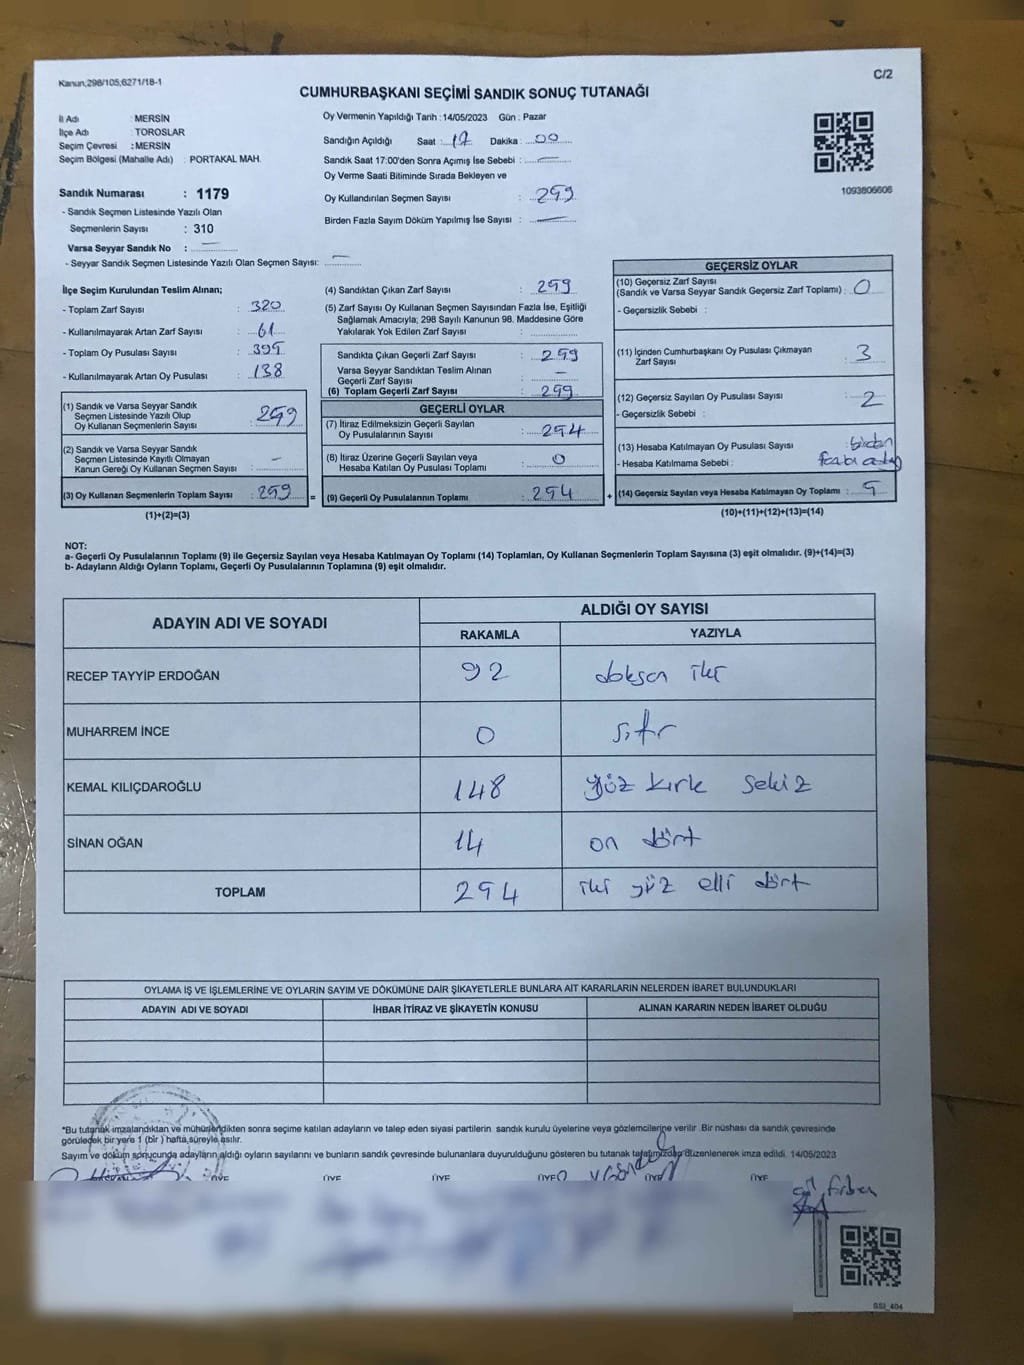 Kanun,298/105,6271/18-1
C/2
CUMHURBAŞKANI SEÇİMİ SANDIK SONUÇ TUTANAĞI
İl Adı : MERSİN
İlçe Adı : TOROSLAR
Seçim Çevresi : MERSİN
Seçim Bölgesi (Mahalle Adı) : PORTAKAL MAH.
Sandık Numarası : 1179
- Sandık Seçmen Listesinde Yazılı Olan
Seçmenlerin Sayısı : 310
Varsa Seyyar Sandık No : —
- Seyyar Sandık Seçmen Listesinde Yazılı Olan Seçmen Sayısı: —
Oy Vermenin Yapıldığı Tarih : 14/05/2023 Gün : Pazar
Sandığın Açıldığı Saat : 17 Dakika : 00
Sandık Saat 17:00'den Sonra Açımış İse Sebebi : —
Oy Verme Saati Bitiminde Sırada Bekleyen ve
Oy Kullandırılan Seçmen Sayısı : 259
Birden Fazla Sayım Döküm Yapılmış İse Sayısı : —
1093806606
İlçe Seçim Kurulundan Teslim Alınan;
- Toplam Zarf Sayısı : 320
- Kullanılmayarak Artan Zarf Sayısı : 61
- Toplam Oy Pusulası Sayısı :
- Kullanılmayarak Artan Oy Pusulası : 138
(1) Sandık ve Varsa Seyyar Sandık
Seçmen Listesinde Yazılı Olup
Oy Kullanan Seçmenlerin Sayısı : 259
(2) Sandık ve Varsa Seyyar Sandık
Seçmen Listesinde Kayıtlı Olmayan
Kanun Gereği Oy Kullanan Seçmen Sayısı : —
(3) Oy Kullanan Seçmenlerin Toplam Sayısı : 259 =
(1)+(2)=(3)
(4) Sandıktan Çıkan Zarf Sayısı : 259
(5) Zarf Sayısı Oy Kullanan Seçmen Sayısından Fazla İse, Eşitliği
Sağlamak Amacıyla; 298 Sayılı Kanunun 98. Maddesine Göre
Yakılarak Yok Edilen Zarf Sayısı :
Sandıkta Çıkan Geçerli Zarf Sayısı : 259
Varsa Seyyar Sandıktan Teslim Alınan
Geçerli Zarf Sayısı : —
(6) Toplam Geçerli Zarf Sayısı : 259
GEÇERLİ OYLAR
(7) İtiraz Edilmeksizin Geçerli Sayılan
Oy Pusulalarının Sayısı : 254
(8) İtiraz Üzerine Geçerli Sayılan veya
Hesaba Katılan Oy Pusulası Toplamı : 0
(9) Geçerli Oy Pusulalarının Toplamı : 254 +
GEÇERSİZ OYLAR
(10) Geçersiz Zarf Sayısı
(Sandık ve Varsa Seyyar Sandık Geçersiz Zarf Toplamı) : 0
- Geçersizlik Sebebi :
(11) İçinden Cumhurbaşkanı Oy Pusulası Çıkmayan
Zarf Sayısı : 3
(12) Geçersiz Sayılan Oy Pusulası Sayısı : 2
- Geçersizlik Sebebi :
(13) Hesaba Katılmayan Oy Pusulası Sayısı : birden
- Hesaba Katılmama Sebebi : fazla
(14) Geçersiz Sayılan veya Hesaba Katılmayan Oy Toplamı : 5
(10)+(11)+(12)+(13)=(14)
NOT:
a- Geçerli Oy Pusulalarının Toplamı (9) ile Geçersiz Sayılan veya Hesaba Katılmayan Oy Toplamı (14) Toplamları, Oy Kullanan Seçmenlerin Toplam Sayısına (3) eşit olmalıdır. (9)+(14)=(3)
b- Adayların Aldığı Oyların Toplamı, Geçerli Oy Pusulalarının Toplamına (9) eşit olmalıdır.
ADAYIN ADI VE SOYADI
ALDIĞI OY SAYISI
RAKAMLA YAZIYLA
RECEP TAYYİP ERDOĞAN 92 doksan iki
MUHARREM İNCE 0 sıfır
KEMAL KILIÇDAROĞLU 148 yüz kırk sekiz
SİNAN OĞAN 14 on dört
TOPLAM 254 iki yüz elli dört
OYLAMA İŞ VE İŞLEMLERİNE VE OYLARIN SAYIM VE DÖKÜMÜNE DAİR ŞİKAYETLERLE BUNLARA AİT KARARLARIN NELERDEN İBARET BULUNDUKLARI
ADAYIN ADI VE SOYADI İHBAR İTİRAZ VE ŞİKAYETİN KONUSU ALINAN KARARIN NEDEN İBARET OLDUĞU
*Bu tutanak imzalandıktan ve mühürlendikten sonra seçime katılan adayların ve talep eden siyasi partilerin sandık kurulu üyelerine veya gözlemcilerine verilir .Bir nüshası da sandık çevresinde
görülecek bir yere 1 (bir ) hafta süreyle asılır.
Sayım ve döküm sonucunda adayların aldığı oyların sayılarını ve bunların sandık çevresinde bulunanlara duyurulduğunu gösteren bu tutanak tarafımızdan düzenlenerek imza edildi. 14/05/2023
ÜYE ÜYE ÜYE ÜYE ÜYE ÜYE
SSI_404